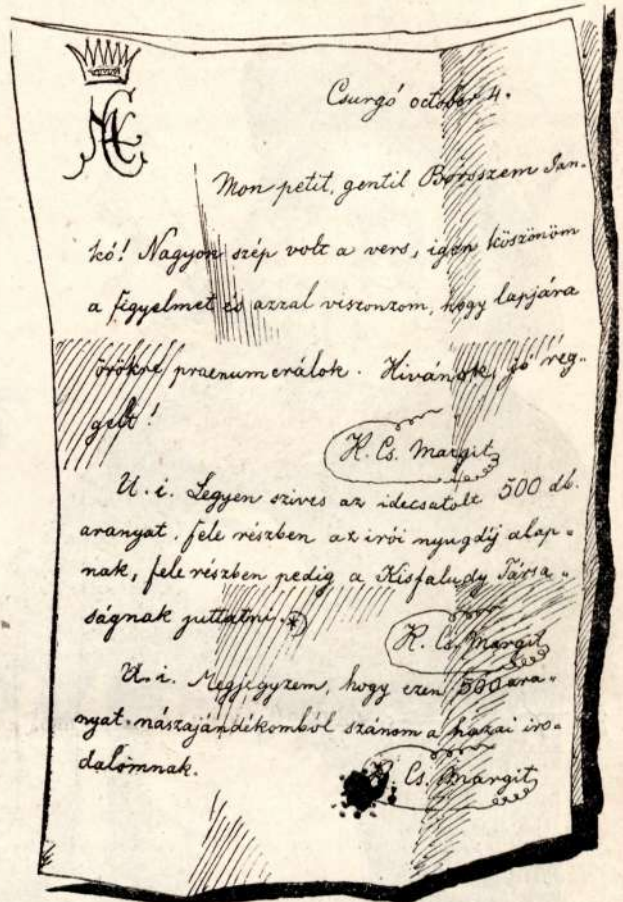 Csurgó october 4.
Mon petit, gentil Borsszem Jan-
kó! Nagyon szép volt a vers, igen köszönöm
a figyelmet és azzal viszonzom, hogy lapjára
örökre praenumerálok. Kivánok jó reg-
gelt!
K. Cs. Margit
U. i. Legyen szives az idecsatolt 500 db.
aranyat, fele részben az irói nyugdíj alap-
nak, fele részben pedig a Kisfaludy Társa-
ságnak juttatni. *)
K. Cs. Margit
U. i. Megjegyzem, hogy ezen 500 ara-
nyat nászajándékomból szánom a hazai iro-
dalomnak.
K. Cs. Margit